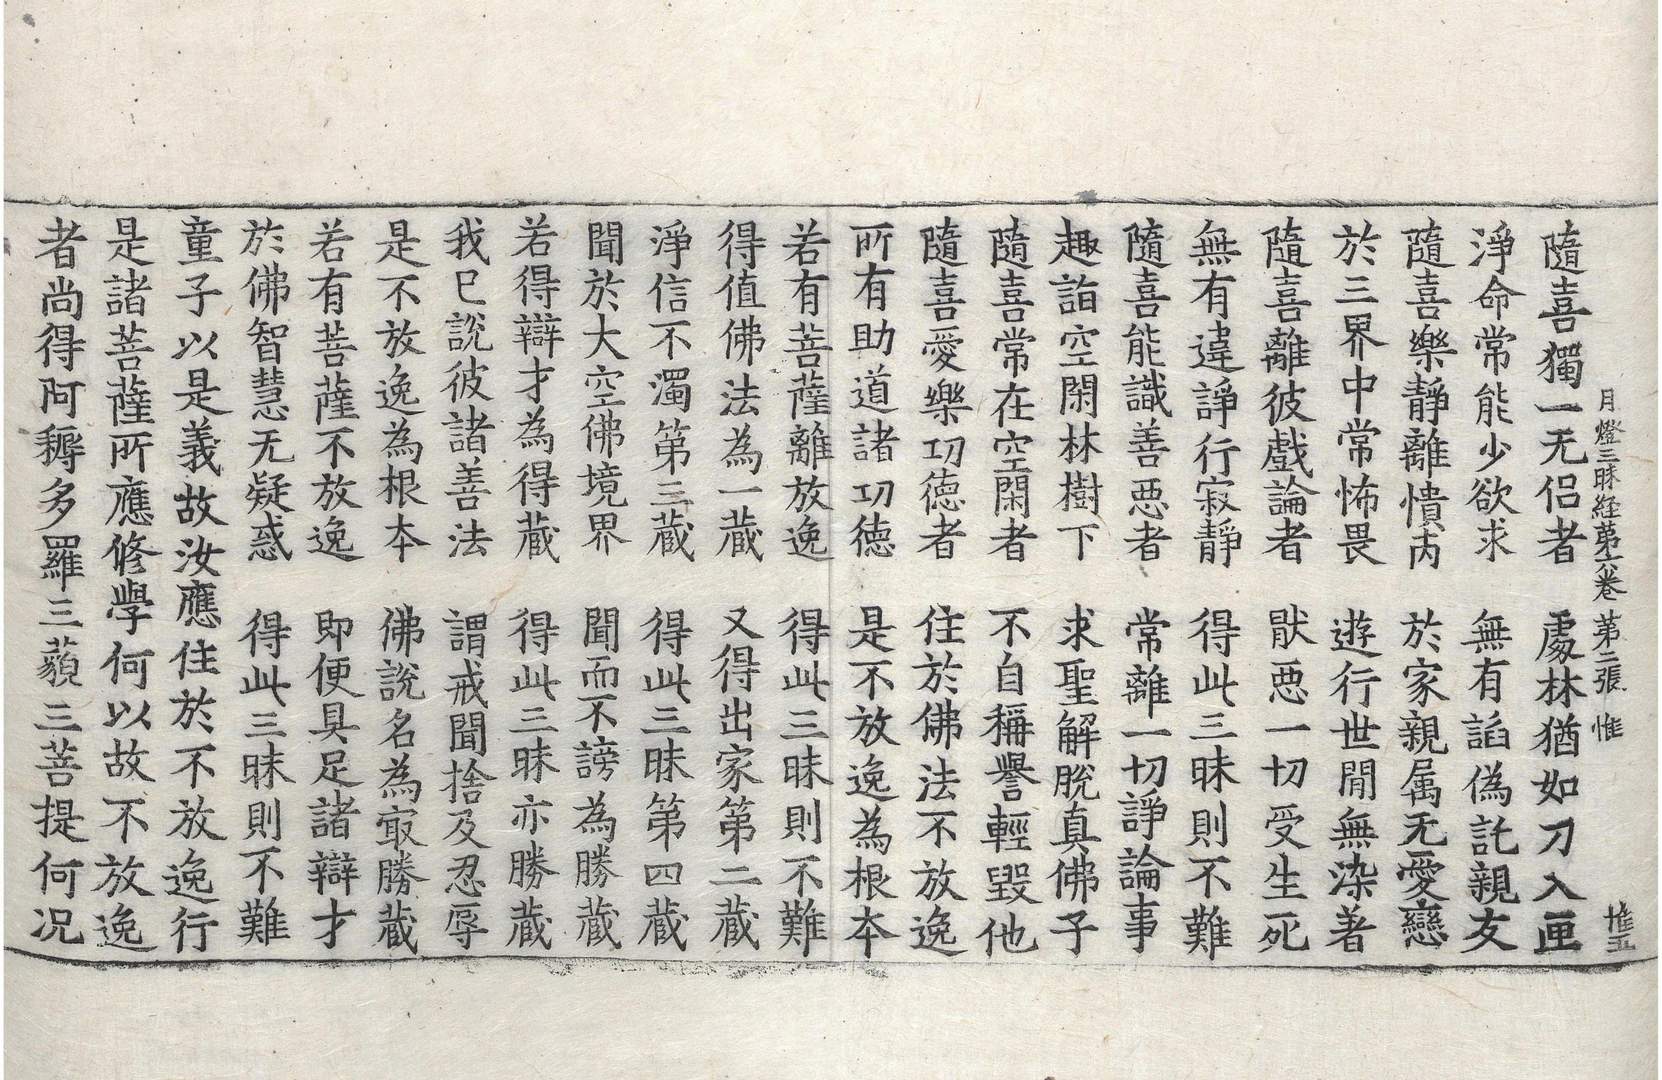 月燈三昧経第六卷 第二張 惟
隨喜獨一无侣者 處林猶如刀入匣
淨命常能少欲求 無有諂偽託親友
隨喜樂靜離憒丙 於家親属无愛戀
於三界中常怖畏 遊行世間無染著
隨喜離彼戲論者 猒惡一切受生死
無有違諍行寂靜 得此三昧則不難
隨喜能識善惡者 常離一切諍論事
趣詣空閑林樹下 求聖解脫真佛子
隨喜常在空閑者 不自稱譽輕毀他
隨喜愛樂功德者 住於佛法不放逸
所有助道諸功德 是不放逸為根本
若有菩薩離放逸 得此三昧則不難
得值佛法為一藏 又得出家第二藏
淨信不濁第三藏 得此三昧第四藏
聞於大空佛境界 聞而不謗為勝藏
若得辯才為得藏 得此三昧亦勝藏
我已說彼諸善法 謂戒聞捨及忍辱
是不放逸為根本 佛說名為寂勝藏
若有菩薩不放逸 即便具足諸辯才
於佛智慧无疑惑 得此三昧則不難
童子以是義故汝應住於不放逸行
是諸菩薩所應修學何以故不放逸
者尚得阿耨多羅三藐三菩提何况